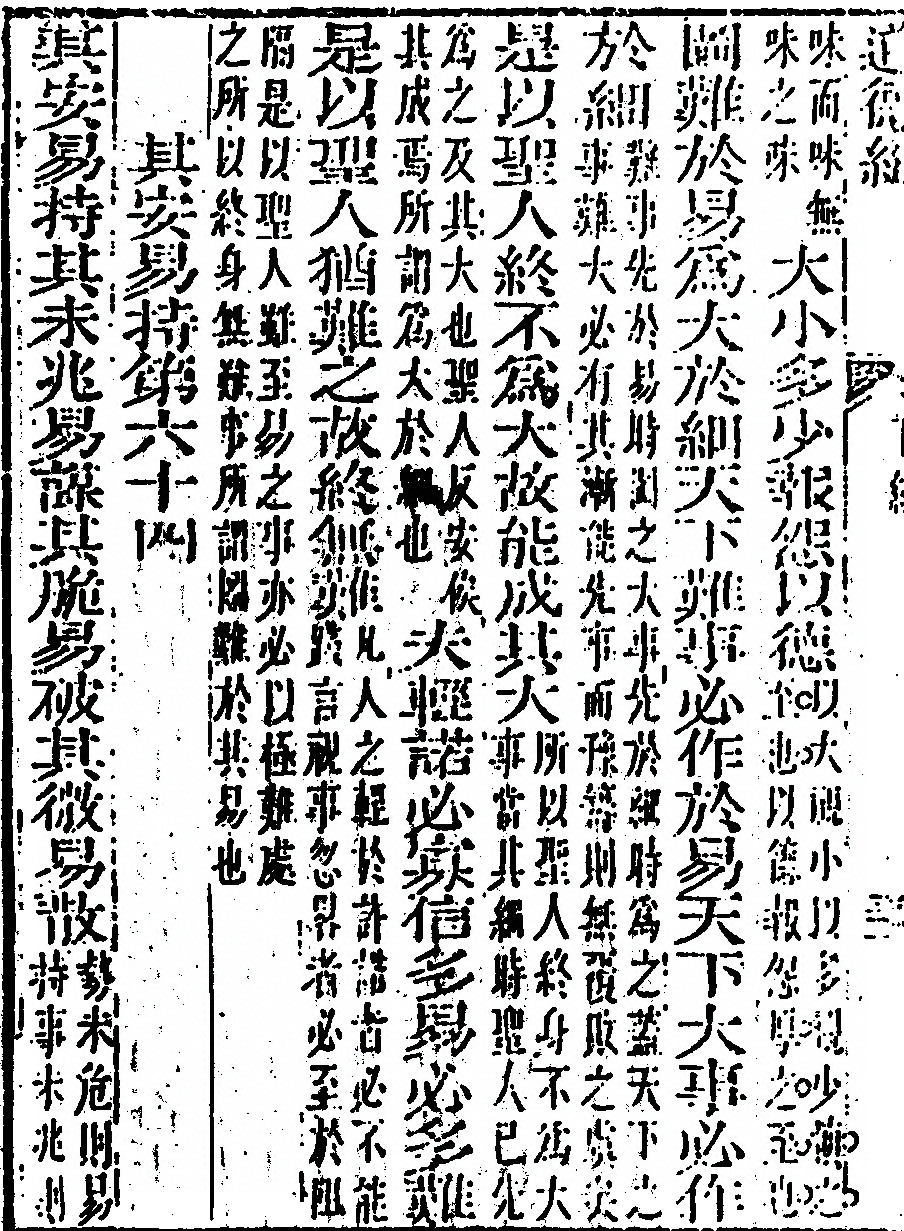 道德經
味而味無
味之味
大小多少報怨以德
以大視小以多視少薄之
至也以德報怨厚之至也
圖難於易爲大於細天下難事必作於易天下大事必作
於細
難事先於易時圖之大事先於細時爲之蓋天下之
事雖大必有其漸能先事而豫籌則無後敗之虞矣
是以聖人終不爲大故能成其大
所以聖人終身不爲大
事當其細時聖人已先
爲之及其大也聖人反安俟
其成焉所謂爲大於細也
夫輕諾必寡信多易必多難
是以聖人猶難之故終無難
凡人之輕於許諾者必不能
踐言視事忽畧者必至於阻
隔是以聖人雖至易之事亦必以極難處
之所以終身無難事所謂圖難於其易也
其安易持第六十四
其安易持其未兆易謀其脆易破其微易散
勢未危則易
持事未兆則